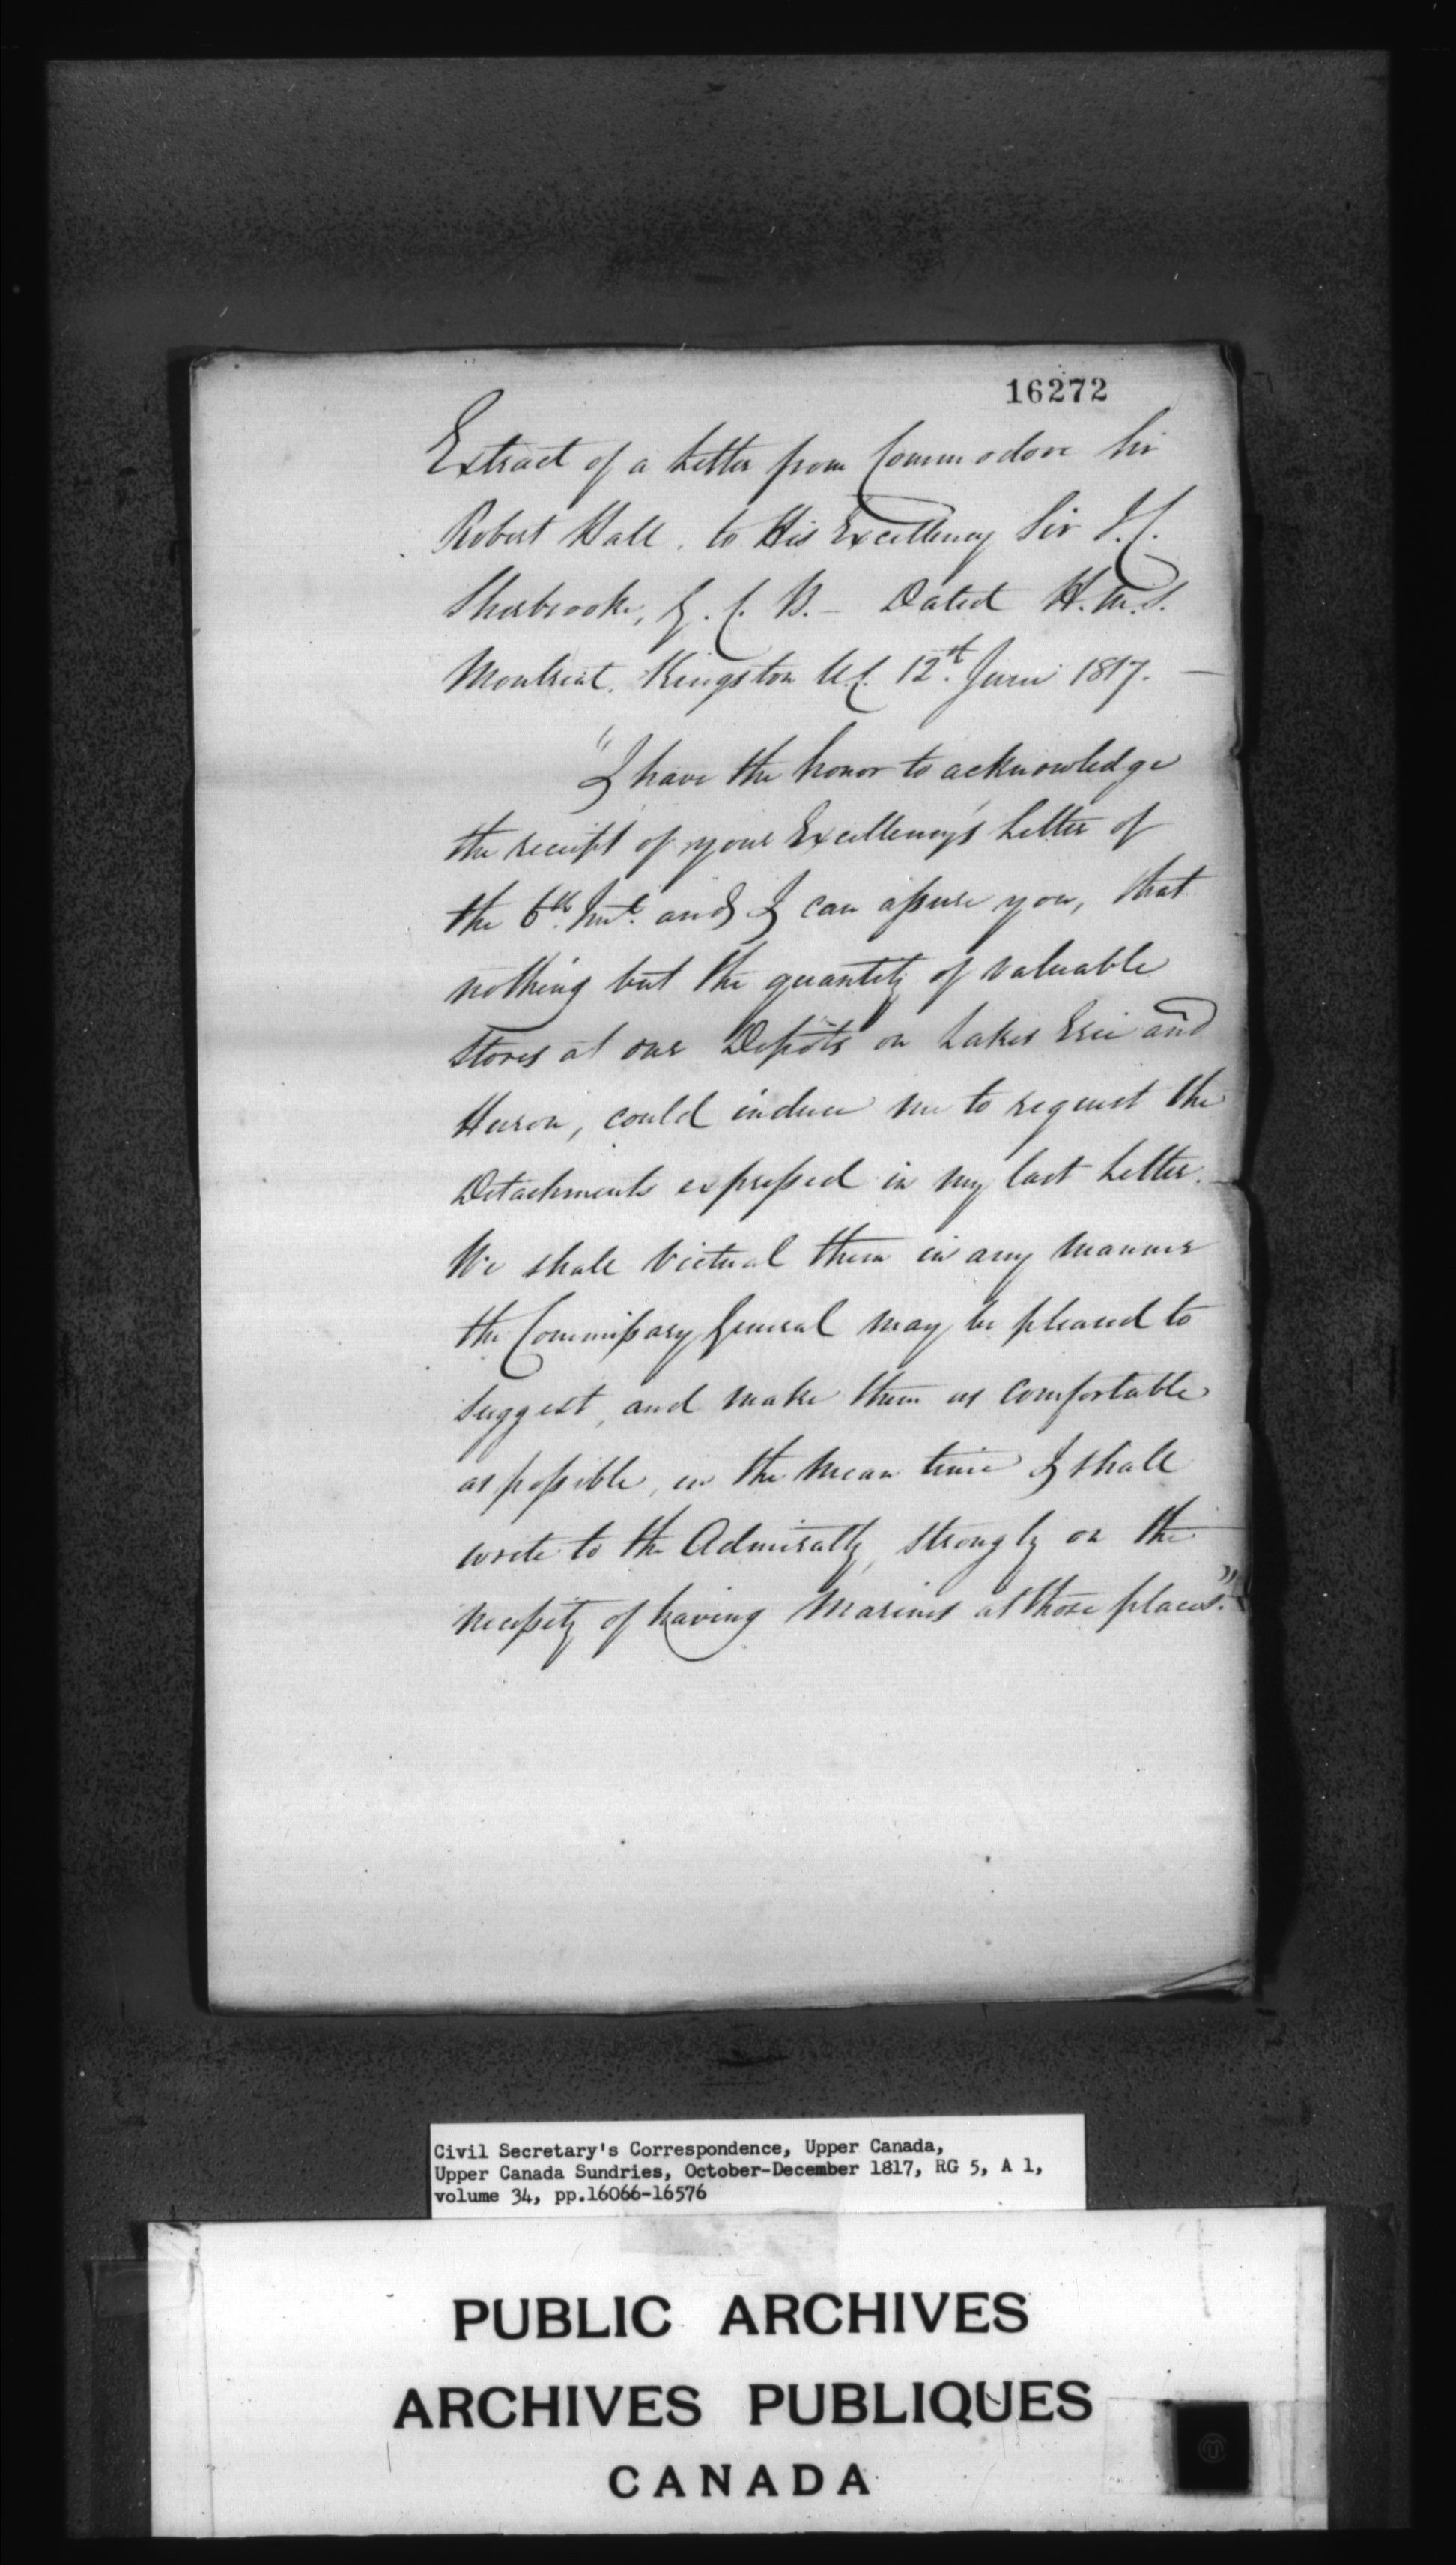 16272
Extract of a Letter from Commodore Sir
Robert Hall, to His Excellency Sir J.C.
Sherbrooke, G.C.B. – Dated H.M.S.
Montreal. Kingston U.C. 12th. June 1817. –
"I have the honor to acknowledge
the receipt of your Excellency's Letter of
the 6th. Inst. and I can assure you, that
nothing but the quantity of valuable
Stores at our Depôts on Lakes Erie and
Huron, could induce me to request the
Detachments expressed in my last Letter.
We shall Victual them in any manner
the Commissary General may be pleased to
suggest, and make them as comfortable
as possible, in the mean time I shall
write to the Admiralty, strongly on the
necessity of having Marines at those places."
Civil Secretary's Correspondence, Upper Canada,
Upper Canada Sundries, October-December 1817, RG 5, A 1,
volume 34, pp.16066-16576
PUBLIC ARCHIVES
ARCHIVES PUBLIQUES
CANADA